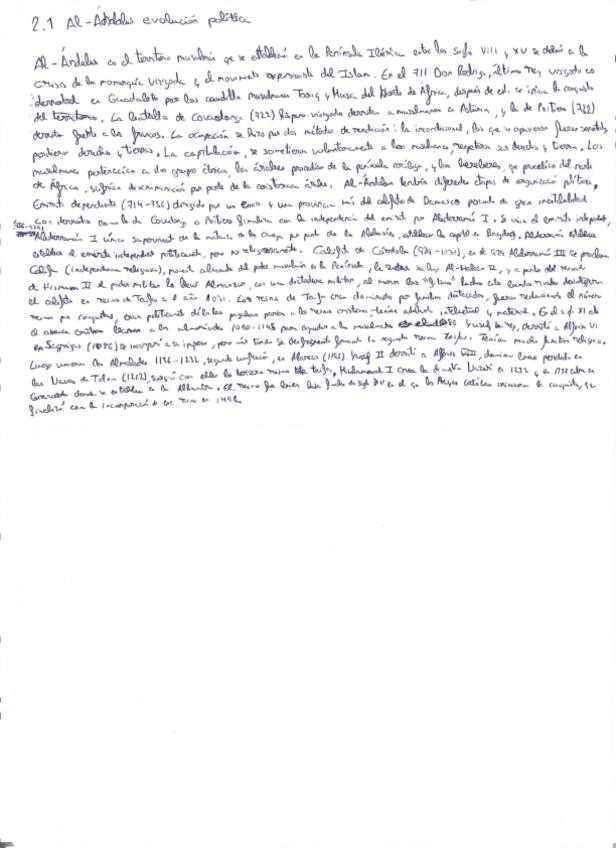 2.1 Al-Ándalus evolución política
Al-Ándalus es el territorio musulmán que se establecen en la Península Ibérica entre los siglo VIII y XV se debió a la
crisis de la monarquía visigoda y el movimiento expansionista del Islam. En el 711 Don Rodrigo, último rey visigodo es
derrotado en Guadalete por los caudillos musulmanes Tariq y Musa del Norte de África, después de el se inicia la conquista
del territorio. La batalla de Covadonga (722) hispano-visigodo derrotan a musulmanes en Asturias, y la de Poitiers (732)
derrota frente a los francos. La ocupación se hizo por dos métodos de rendición: la incondicional, los que se opusieron fueron
perdieron derechos y tierras. La capitulación, se sometieron voluntariamente a los musulmanes respetaron sus derechos y tierras. Los
musulmanes pertenecían a dos grupos étnicos, los árabes procedían de la península arábiga, y los bereberes, que procedían del norte
de África, sufrían discriminación por parte de la aristocracia árabe. Al-Ándalus tendría diferentes etapas de organización política.
Emirato dependiente (714-756) dirigido por un emir y una provincia más del califato de Damasco periodo de gran inestabilidad
con derrotas como la de Covadonga o Poitiers finaliza con la independencia del emirato por Abderramán I. Se inicia el emirato independiente,
Abderramán I único superviviente de la matanza de los Omeya por parte de los Abasíes, establecen la capital en Bagdag, Abderramán establece
establece el emirato independiente políticamente, pero no religiosamente. Califato de Córdoba (929-1031), en el 929 Abderramán III se proclama
Califa (independencia religiosa), momento de poder musulmán en la Península, le sucede su hijo Al-Hakem II, y a partir del reinado
de Hisham II el poder militar lo lleva Almanzor, con una dictadura militar, al morir los luchas
el califato en reinos de Taifa el año 1031. Los reinos de Taifa eran dominados por familias destacadas, fueron reduciendo el número
reinos por conquistas, eran políticamente débiles pagaban parias a los reinos cristianos intelectual y material. En el s.f XI
el avance cristiano llamaron a los almorávides 1090-1145 para ayudar a los musulmanes Yusuf derrotó a Alfonso VI
en Sagrajas (1086) se incorporó a su imperio, pero más tarde se formando la segunda reinos Taifas. Tenían mucho fanatismo religioso.
Luego vinieron los Almohades 1146-1232, segunda unificación, en Alarcos (1195) Yusuf II derrotó a Alfonso VIII,
las Navas de Tolosa (1212), surgió con ellos la tercera reinos de taifas, Muhammad I crea la dinastía Nazarí en 1232 y
Granada donde se establece en la Alhambra. El reino fue hasta finales de sigl XV en el que los Reyes Católicos iniciaron la conquista, que
finalizó con la incorporación de este reino en 1492.